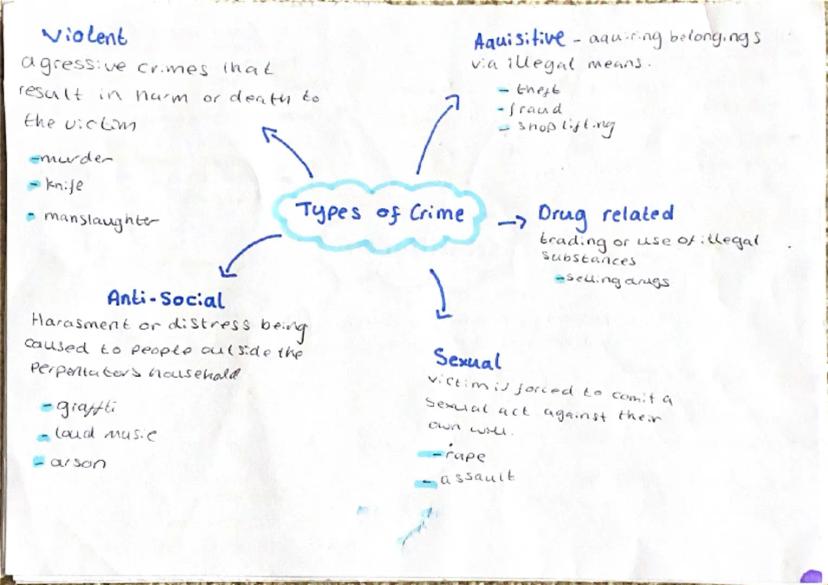 Violent
agressive crimes that
result in harm or death to
the victim
- murder
- knife
- manslaughter
Aquisitive - aquiring belongings
via illegal means.
- theft
- fraud
- shop lifting
Types of Crime
Drug related
trading or use of illegal
substances
- selling drugs
Anti-Social
Harasment or distress being
caused to people outside the
perpentators household
- graffti
- loud music
- arson
Sexual
victim is forced to comit a
sexual act against their
own will.
- rape
- assault